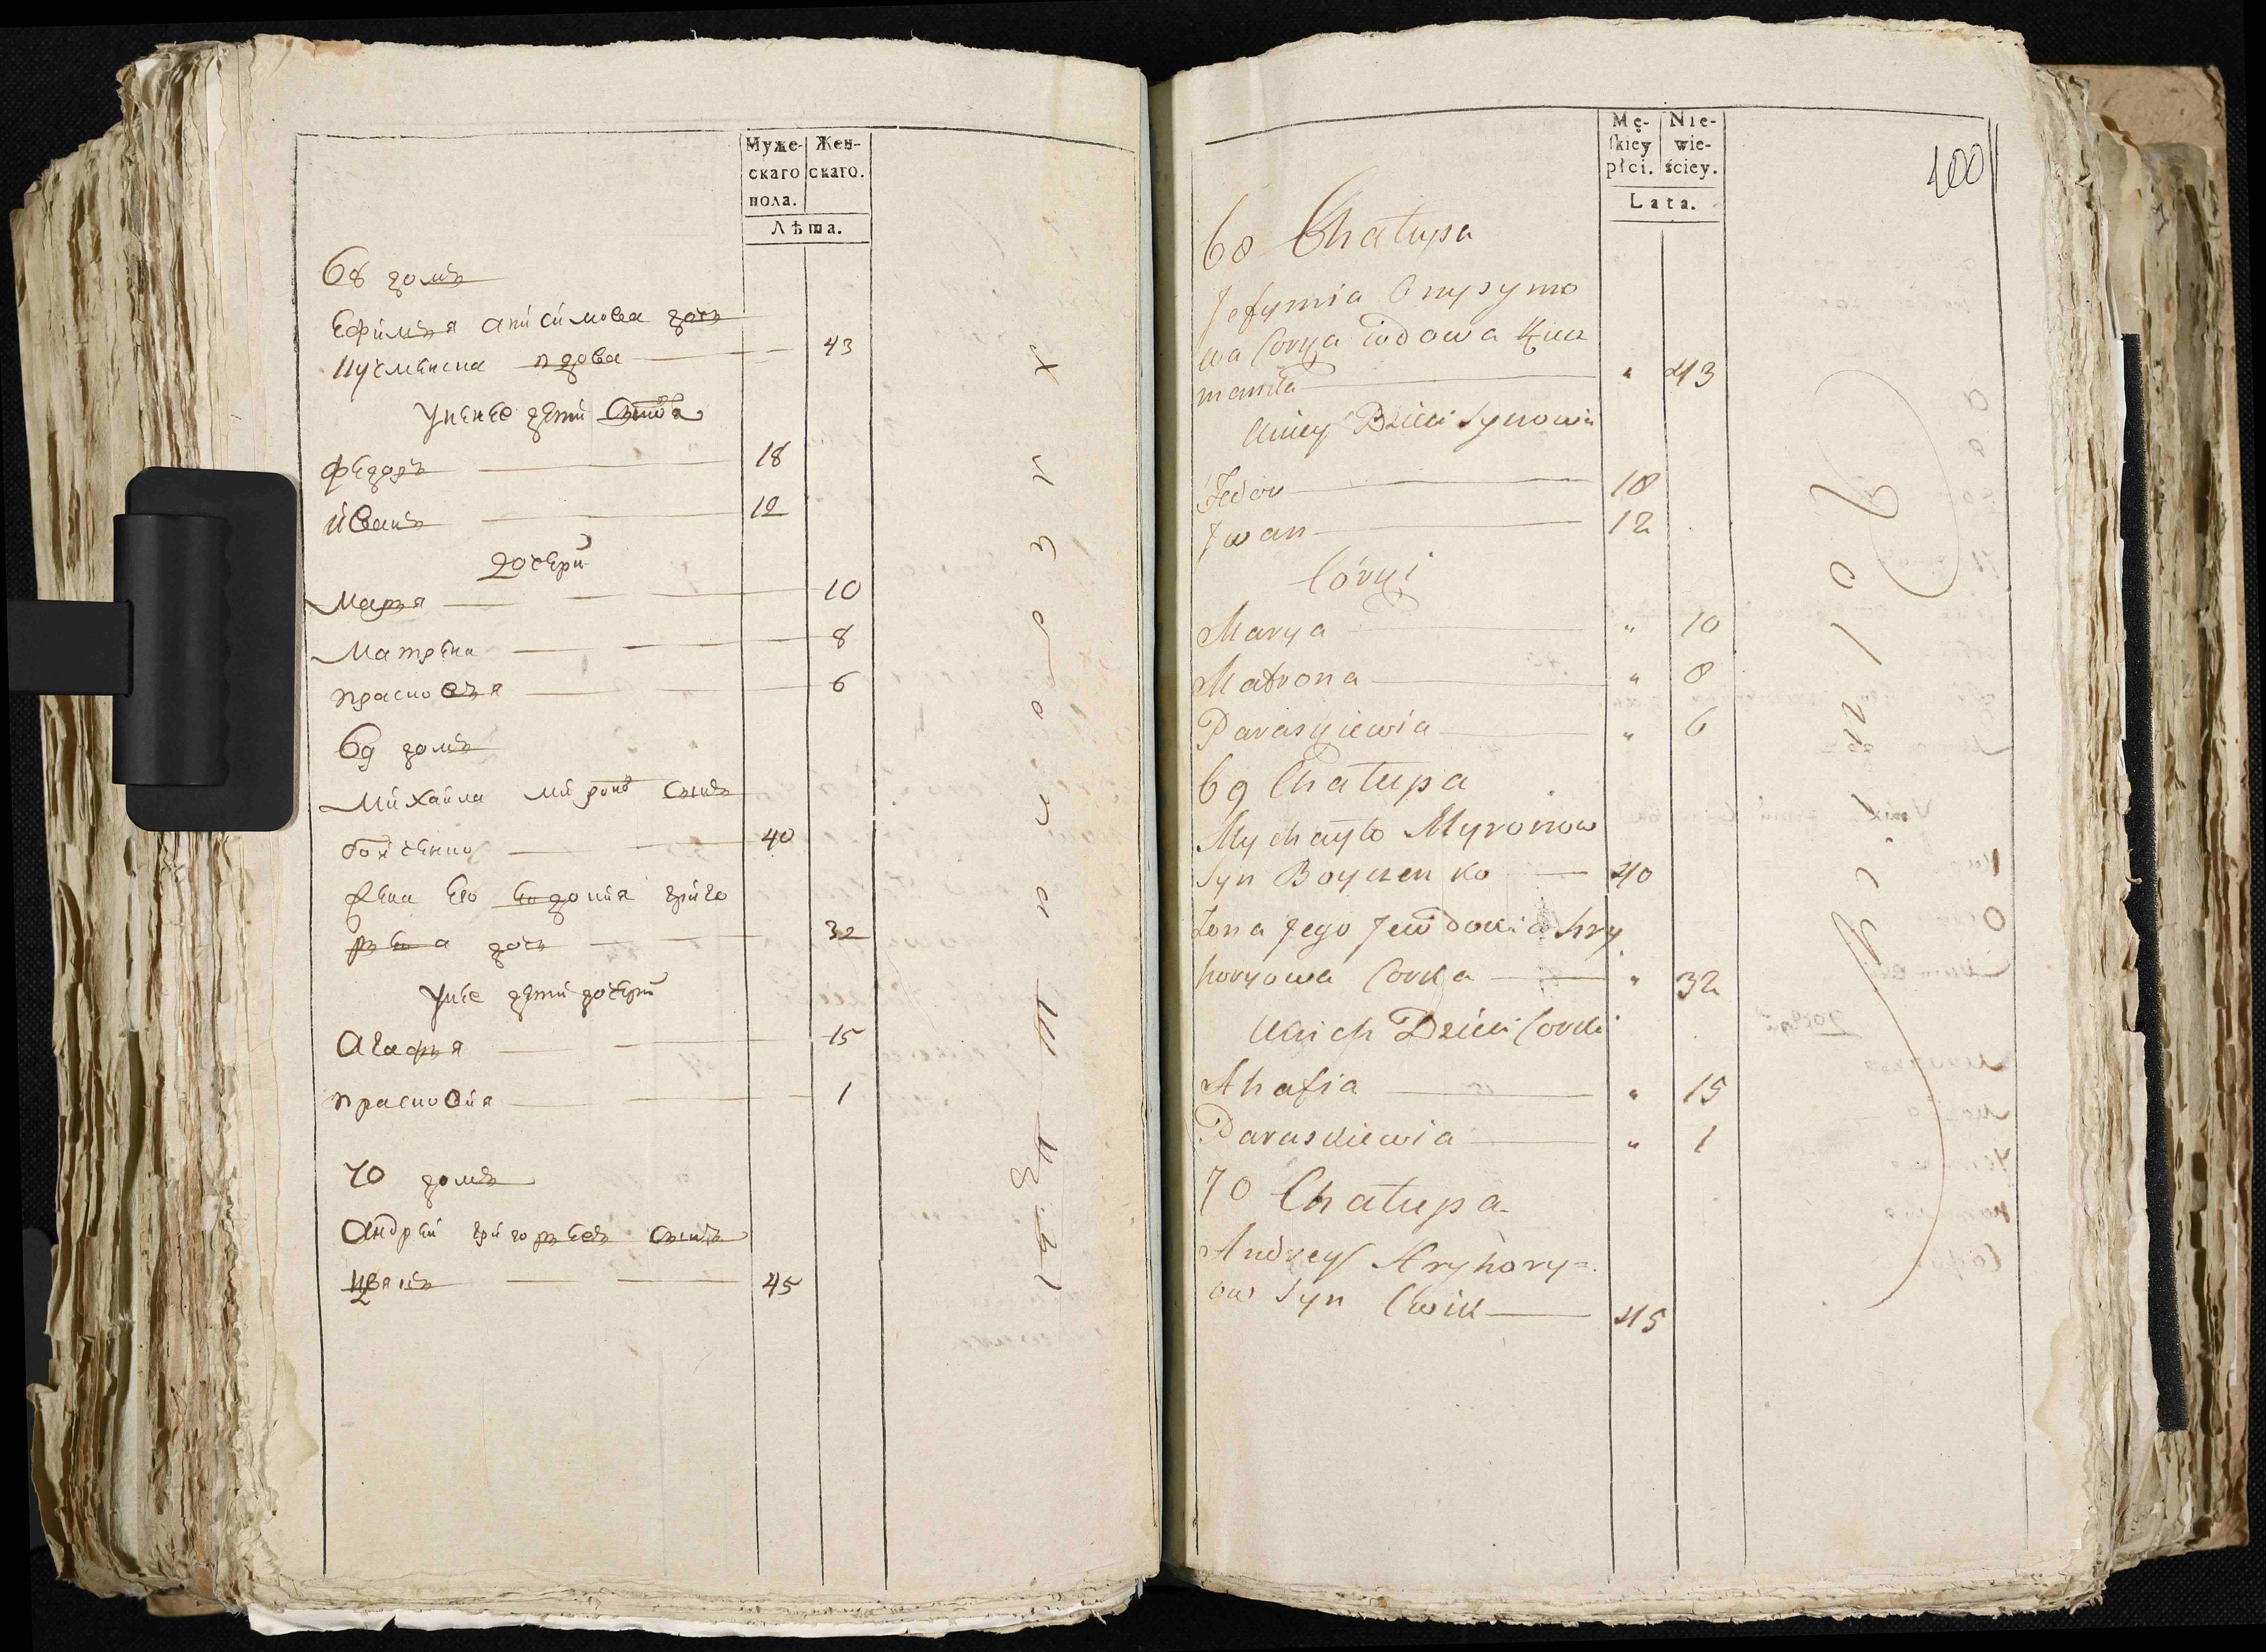 Муже-
скаго
пола.
Жен-
скаго.
Лѣта.
68 домъ
Ефимья анисимова дочь
вдова 43
У неѣ дети
федоръ 18
иванъ 12
дочери
Марья 10
Матрена 8
прасковья 6
69 домъ
Михайла миронов сынъ
бойченко 40
жена Его Евдокия григо
рьева дочь 32
У нее дети дочери
Агафья 15
прасковия 1
70 домъ
Андрей григорьевъ сынъ
45
Mę-
skiey
płci.
Nie-
wie-
ściey.
Lata.
100
68 Chałupa
Jefymia Onysymo
wa Corka wdowa
" 43
Uniey Dzieci Synowie
Fedor 18
Jwan 12
Córki
Marya " 10
Matrona " 8
Paraskiewia " 6
69 Chałupa
Mychayło Myronow
Syn Boyczenko 40
Żona Jego Jewdokia Hry
horyowa Corka " 32
Unich Dzieci Corki
Ahafia " 15
Paraskiewia " 1
70 Chałupa
Andrzey Hryhory=
ow Syn Cwik 45